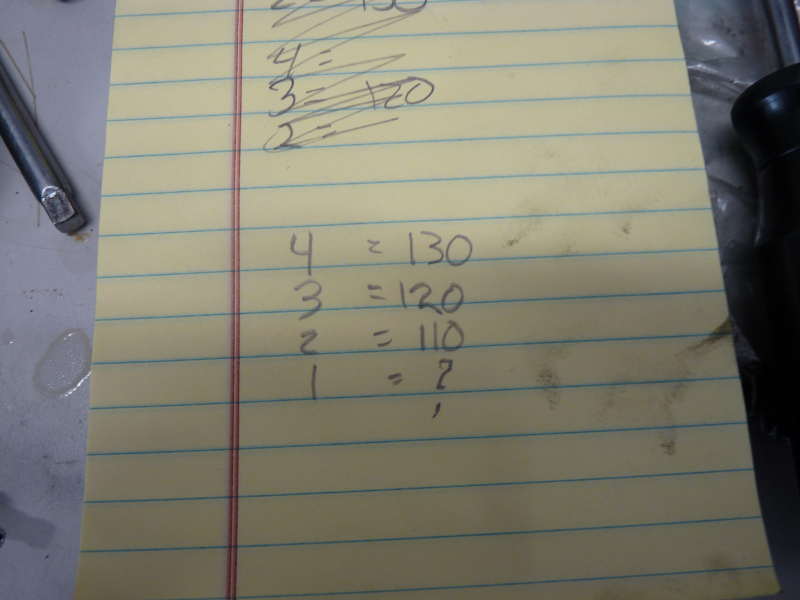 4 =
3 = 120
2 =
4 = 130
3 = 120
2 = 110
1 = ?